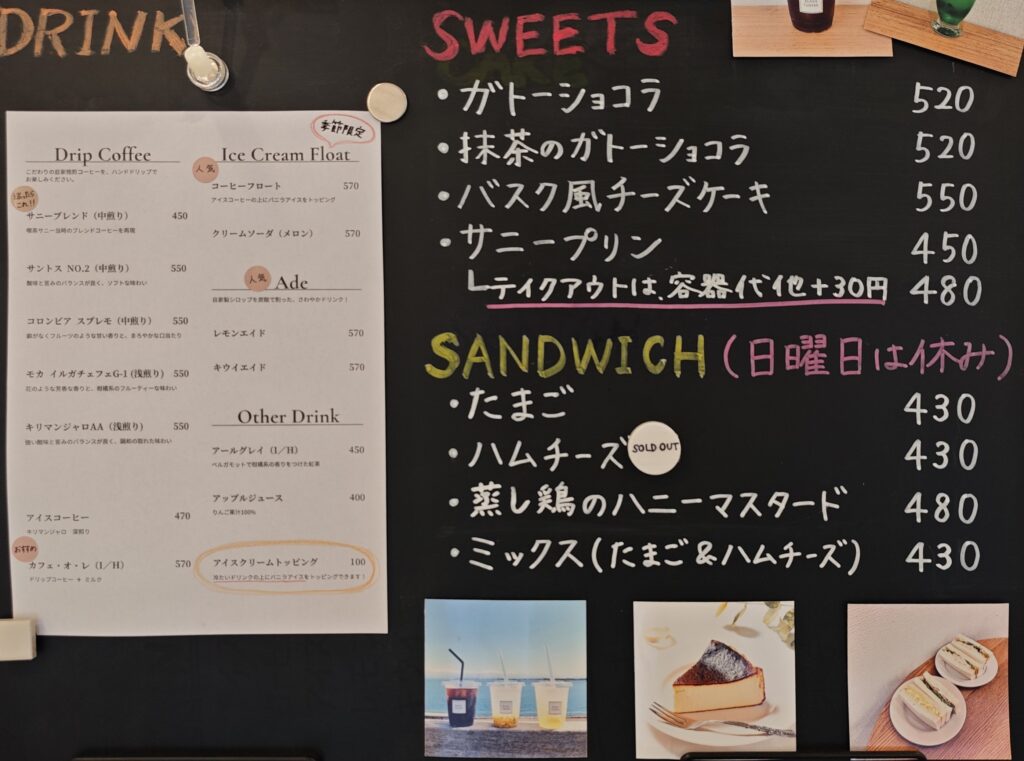 DRINK
Drip Coffee
こだわりの自家焙煎コーヒーを、ハンドドリップで
お楽しみください。
まよったら
これ!!
サニーブレンド（中煎り） 450
喫茶サニー当時のブレンドコーヒーを再現
サントス NO.2（中煎り） 550
酸味と苦みのバランスが良く、ソフトな味わい
コロンビア スプレモ（中煎り） 550
癖がなくフルーツのような甘い香りと、まろやかな口当たり
モカ イルガチェフェG-1 (浅煎り) 550
花のような芳香な香りと、柑橘系のフルーティーな味わい
キリマンジャロAA（浅煎り） 550
強い酸味と苦みのバランスが良く、調和の取れた味わい
アイスコーヒー 470
キリマンジャロ 深煎り
おすすめ
カフェ・オ・レ（I/H） 570
ドリップコーヒー + ミルク
季節限定
Ice Cream Float
人気
コーヒーフロート 570
アイスコーヒーの上にバニラアイスをトッピング
クリームソーダ（メロン） 570
人気
Ade
自家製シロップを炭酸で割った、さわやかドリンク！
レモンエイド 570
キウイエイド 570
Other Drink
アールグレイ（I/H） 450
ベルガモットで柑橘系の香りをつけた紅茶
アップルジュース 400
りんご果汁100%
アイスクリームトッピング 100
冷たいドリンクの上にバニラアイスをトッピングできます！
SWEETS
・ガトーショコラ 520
・抹茶のガトーショコラ 520
・バスク風チーズケーキ 550
・サニープリン 450
テイクアウトは、容器代他+30円 480
SANDWICH (日曜日は休み)
・たまご 430
・ハムチーズ SOLD OUT 430
・蒸し鶏のハニーマスタード 480
・ミックス(たまご&ハムチーズ) 430